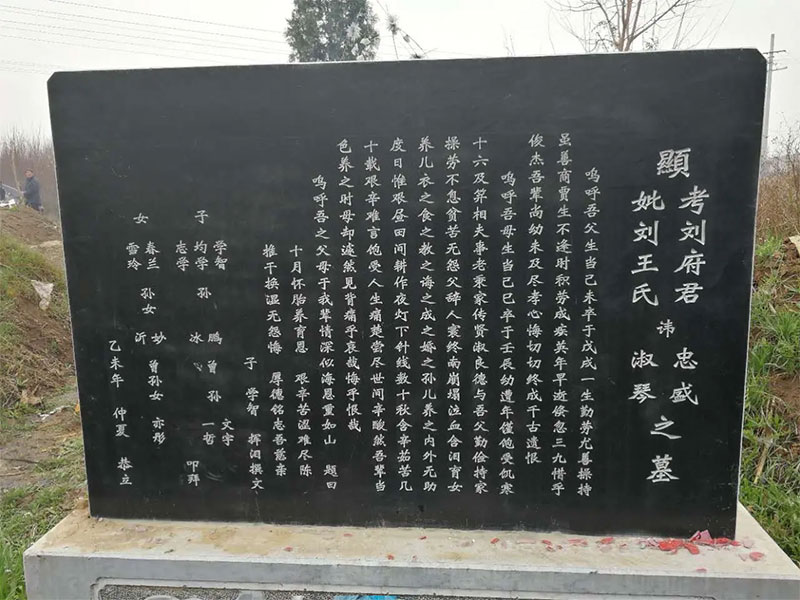 顯考刘府君讳忠盛
妣刘王氏淑琴之墓
呜呼吾父生当己未卒于戊戌一生勤劳尤善操持
虽善商贾生不逢时积劳成疾英年早逝倏忽三九惜乎
俊杰吾辈尚幼未及尽孝心悔切切终成千古遗恨
呜呼吾母生当己巳卒于壬辰幼遭年馑饱受饥寒
十六及笄相夫事老秉家传贤淑良德与吾父勤俭持家
操劳不息贫苦无怨父辞人寰终南崩塌泣血含泪育女
养儿衣之食之教之诲之成之婚之孙儿养之内外无助
度日惟艰昼田间耕作夜灯下针线数十秋含辛茹苦几
十载艰辛难言饱受人生痛楚尝尽世间辛酸然吾辈当
色养之时母却遽然见背痛乎哀哉悔乎恨哉
呜呼吾之父母于我辈情深似海恩重如山 题曰
十月怀胎养育恩 艰辛苦温难尽陈
推干换湿无怨悔 厚德铭志吾慈亲
子 学智 挥泪撰文
学智 鹏 文宇
子 均学 孙 曾孙
志学 冰 一哲 叩拜
春兰 妙
女 孙女 曾孙女 亦彤
雪玲 沂
乙未年 仲夏 恭立